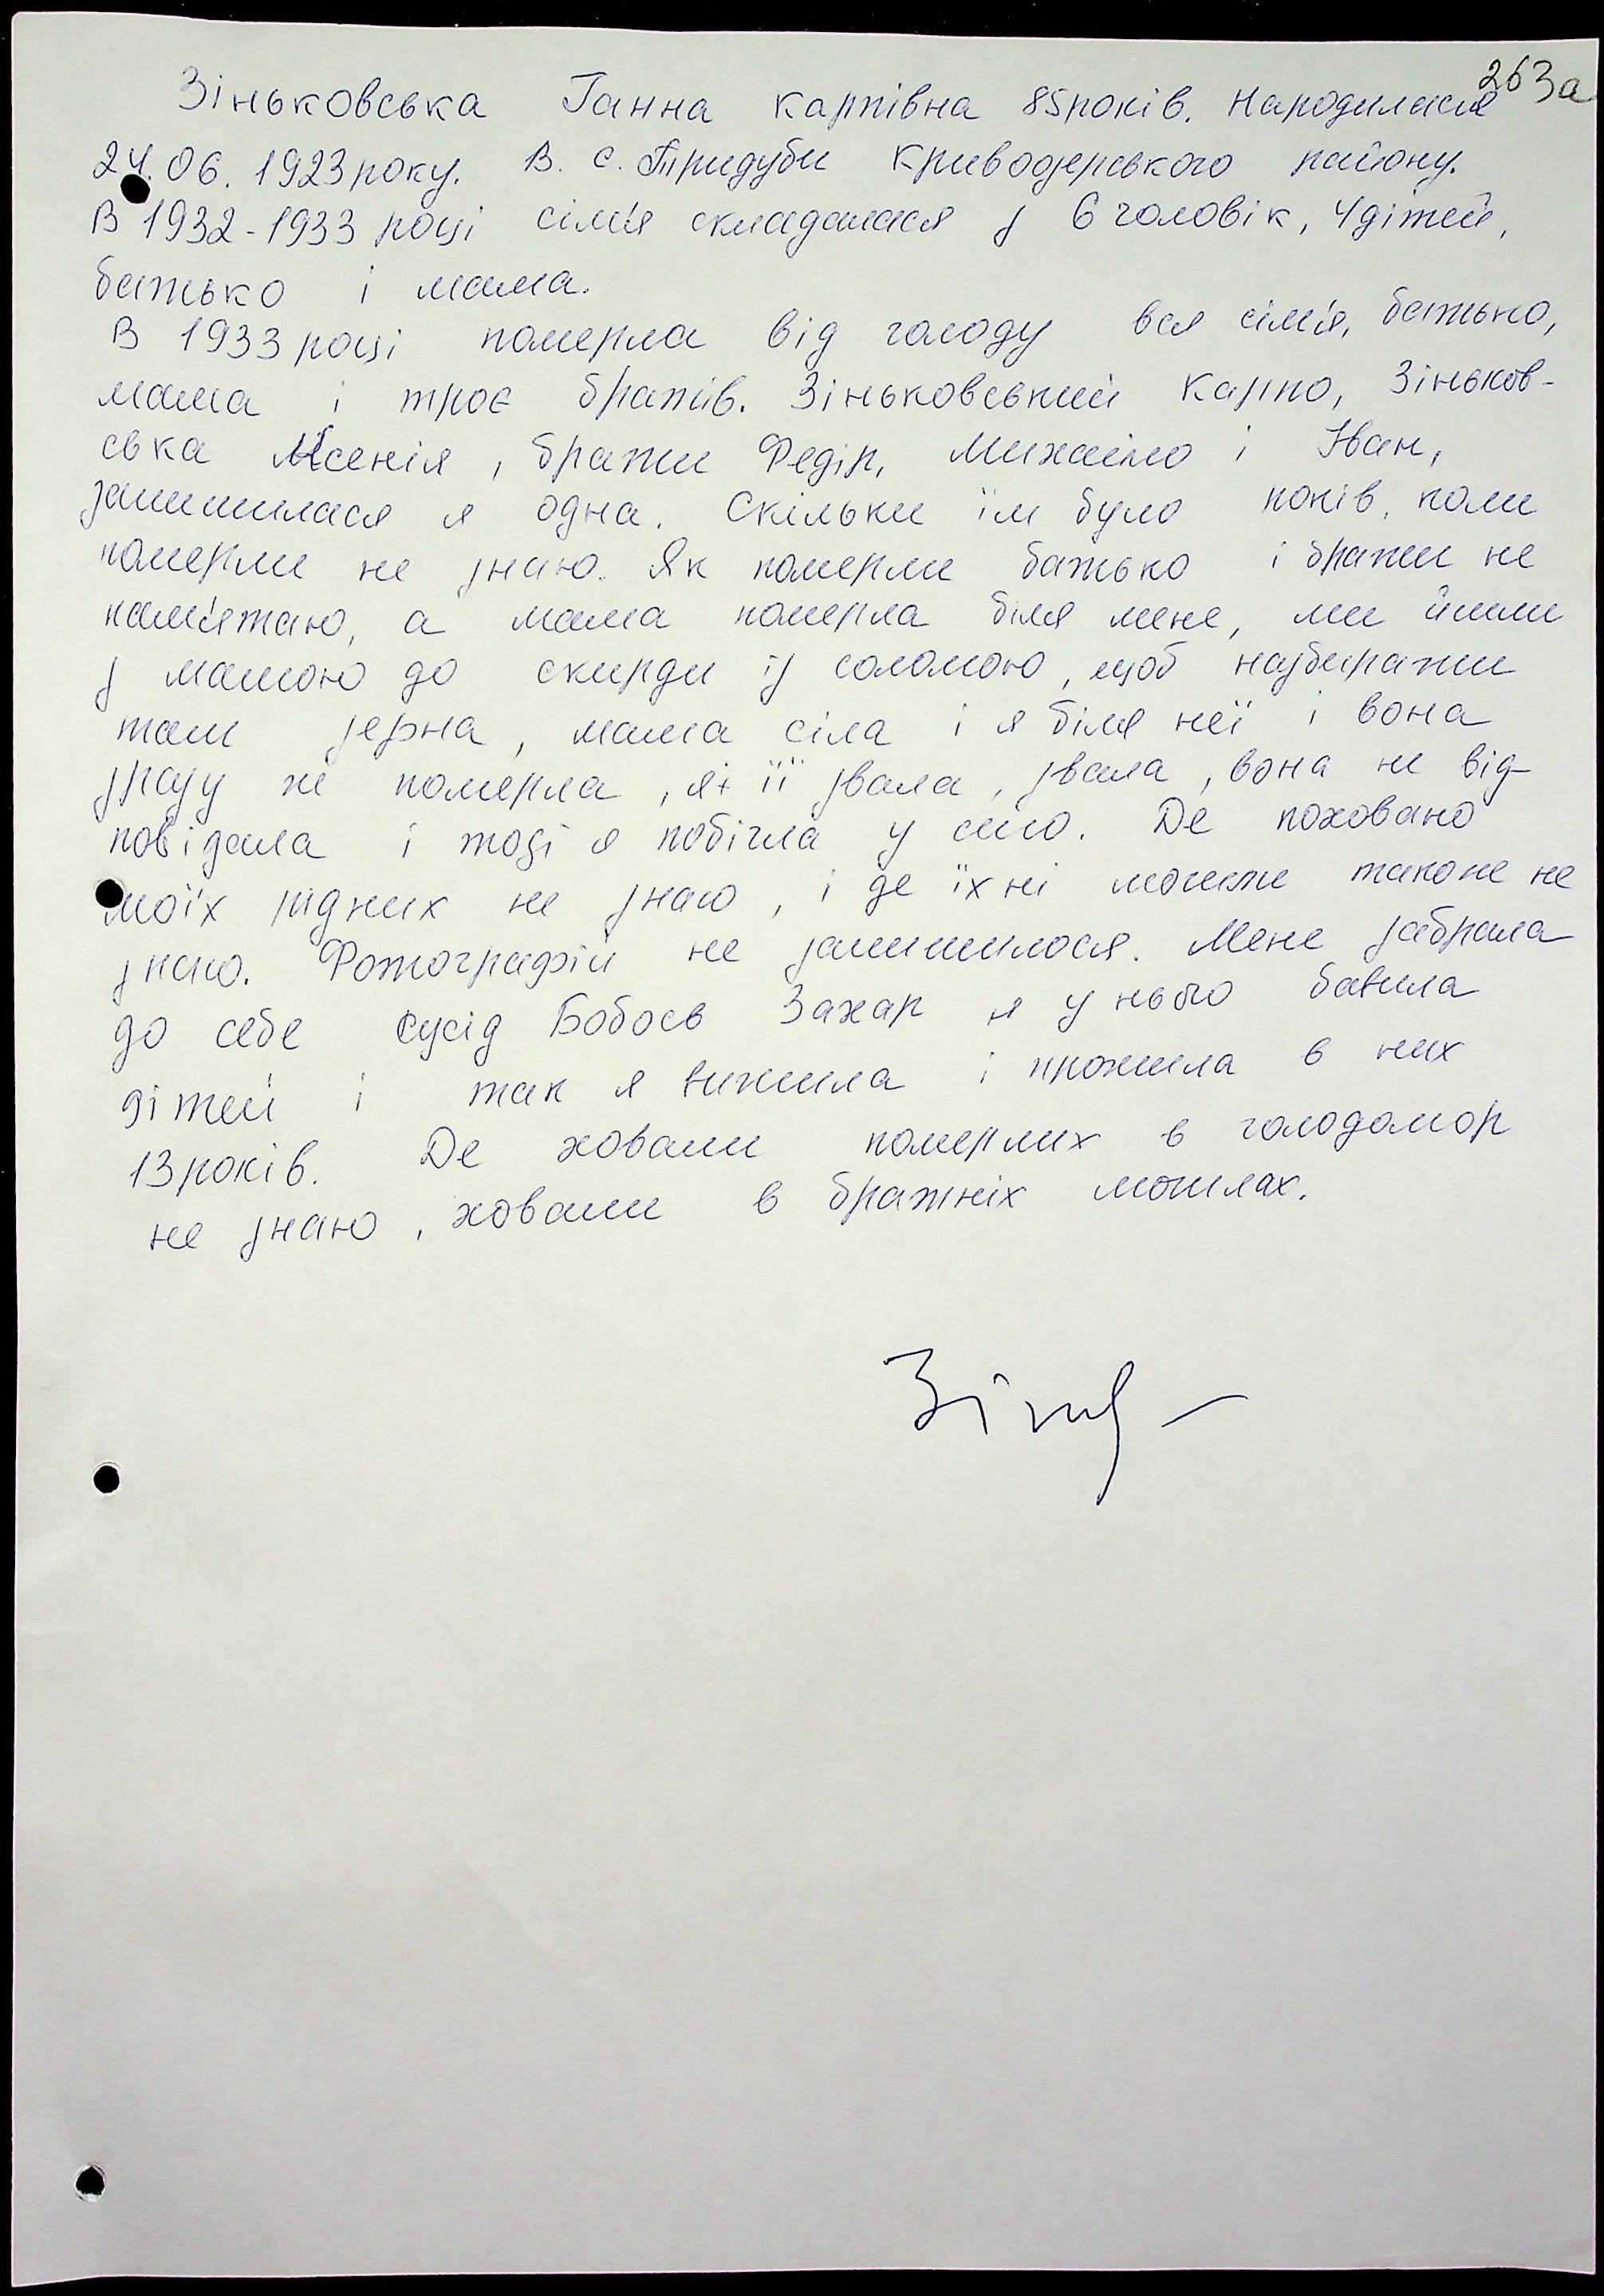 263а
Зіньковська Ганна Карпівна 85років. Народилася
24.06.1923року. В. с. Тридуби Кривоозерського району.
В 1932-1933 році сім'я складалася з 6 чоловік, 4дітей,
батько і мама.
В 1933році померла від голоду вся сім'я, батько,
мама і троє братів. Зіньковський Карпо, Зіньков-
ська Ксенія, брати Федір, Михайло і Іван,
залишилася я одна. Скільки їм було років, коли
померли не знаю. Як померли батько і брати не
пам'ятаю, а мама померла біля мене, ми йшли
з мамою до скирди із соломою, щоб назбирати
там зерна, мама сіла і я біля неї і вона
зразу же померла, я її звала, звала, вона не від-
повідала і тоді я побігла у село. Де поховано
моїх рідних не знаю, і де їхні могили також не
знаю. Фотографій не залишилося. Мене забрала
до себе сусід Бобоєв Захар я у нього бавила
дітей і так я вижила і прожила в них
13років. Де ховали померлих в голодомор
не знаю, ховали в братніх могилах.